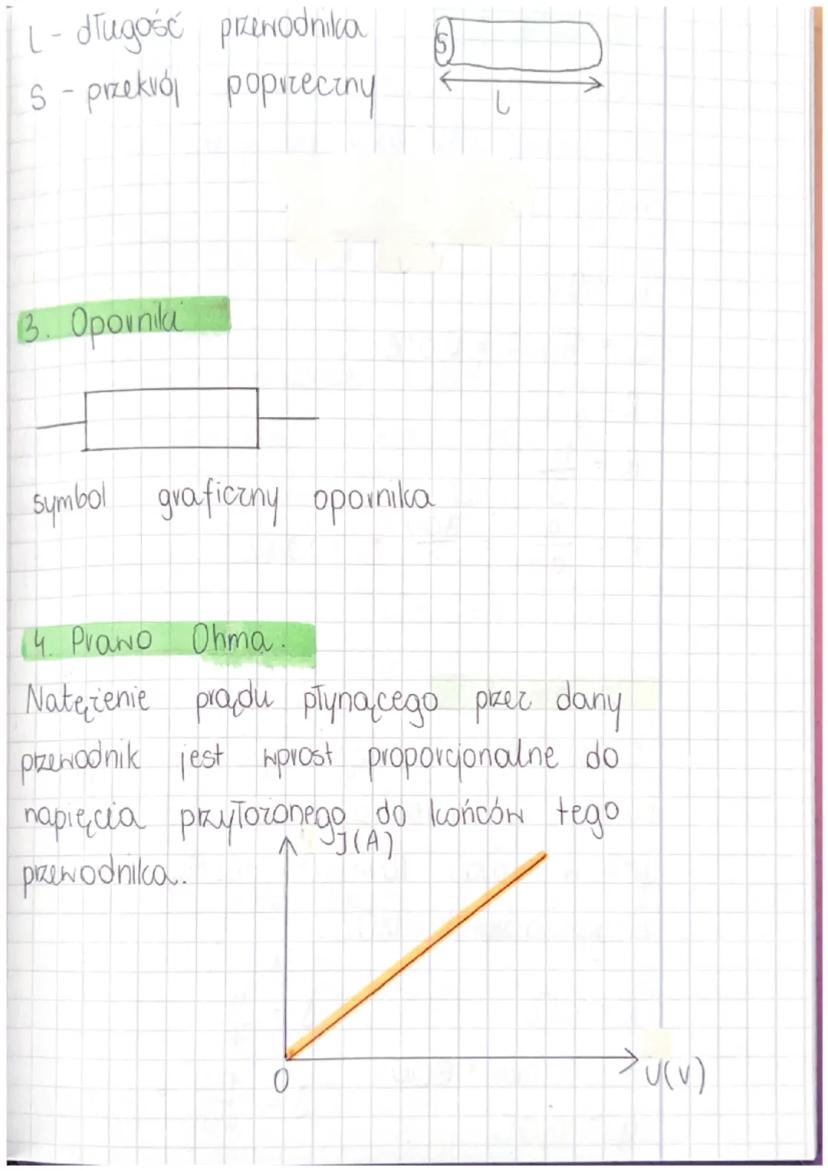 l - długość przewodnika
S - przekrój poprzeczny
S
l
3. Oporniki
symbol graficzny opornika
4. Prawo Ohma.
Natężenie prądu płynącego przez dany
przewodnik jest wprost proporcjonalne do
napięcia przyłożonego do końców tego
przewodnika.
I(A)
0
U(V)